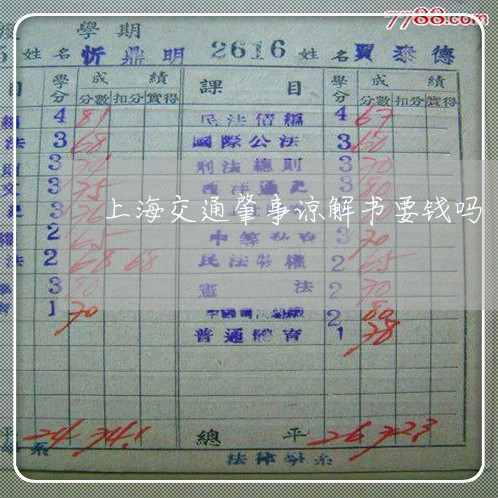 7788.com
學期
姓名 忻鼎明 2616 姓名 賈泰德
目 學分 成績 課目 學分 成績
分數 扣分 實得 分數 扣分 實得
4 81 民法債編 4 67
法 3 68 國際公法 3 60
3 刑法總則 3 70
3 75 3 80
上海交通肇事谅解书要钱吗
2 65 3 70
法 2 68 68 民法物權 2 65
3 80 憲法 2 70
1 70 2 80
普通體育 1 78
平 24 74.1 總平 26 72.3
系 法律學系